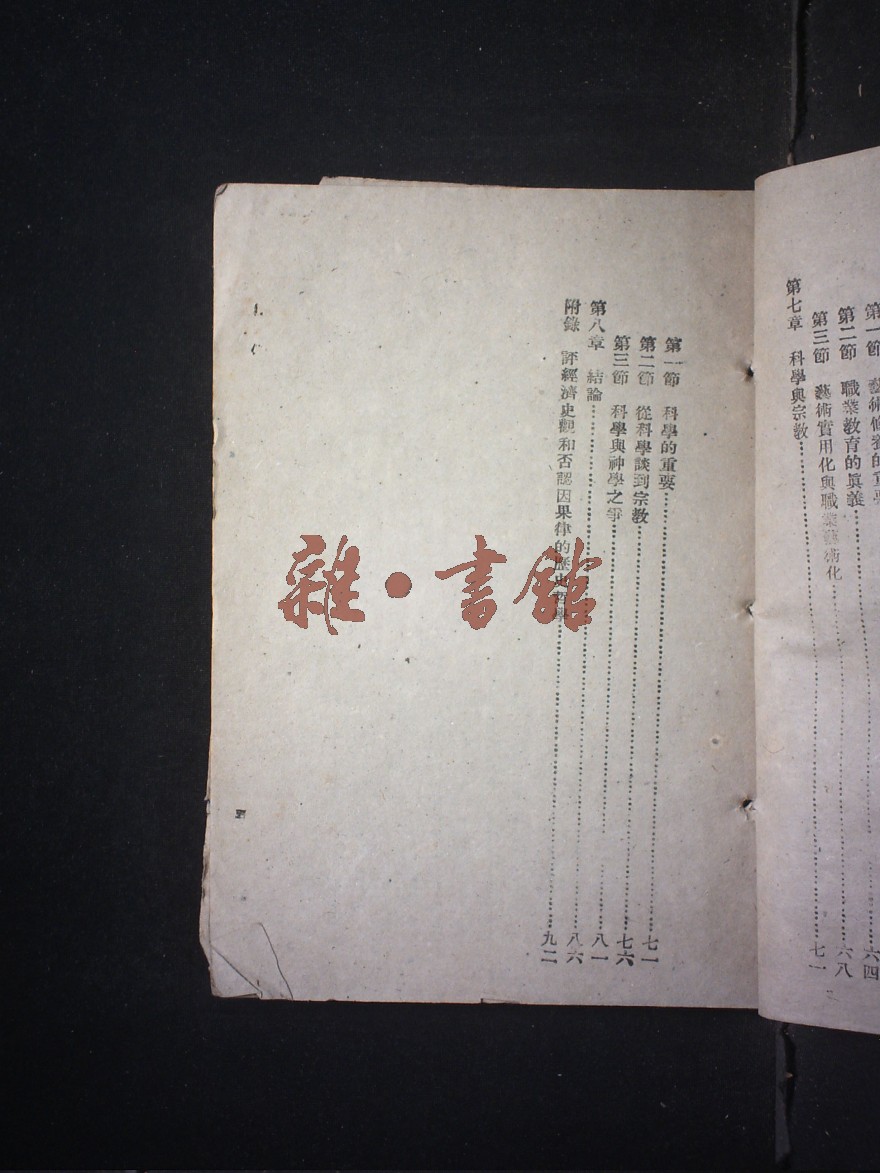 第一節　藝術修養的重要……六四
第二節　職業教育的眞義……六八
第三節　藝術實用化與職業藝術化……七一
第七章　科學與宗教……
第一節　科學的重要……七一
第二節　從科學談到宗教……七六
第三節　科學與神學之爭……八一
第八章　結論……八六
附錄　評經濟史觀和否認因果律的歷史哲學……九二
雜·書館